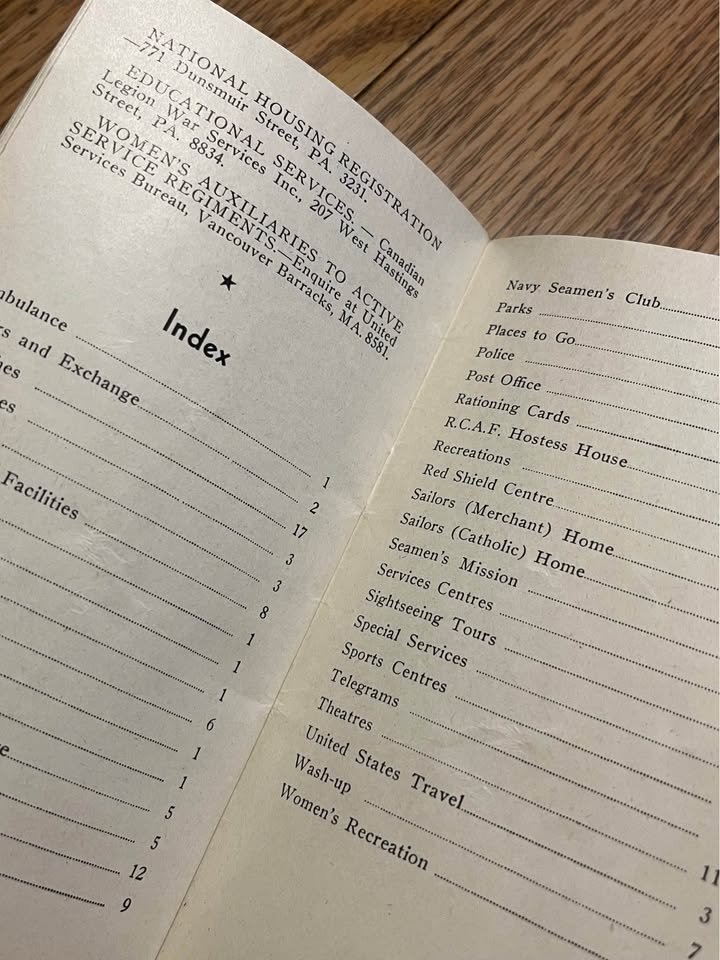 NATIONAL HOUSING REGISTRATION
—771 Dunsmuir Street, PA. 3231.
EDUCATIONAL SERVICES. — Canadian
Legion War Services Inc., 207 West Hastings
Street, PA. 8834.
WOMEN'S AUXILIARIES TO ACTIVE
SERVICE REGIMENTS.—Enquire at United
Services Bureau, Vancouver Barracks, MA. 8581.
★
Index
mbulance 1
rs and Exchange 2
hes 17
es 3
3
Facilities 8
1
1
1
6
1
1
5
5
12
9
Navy Seamen's Club
Parks
Places to Go
Police
Post Office
Rationing Cards
R.C.A.F. Hostess House
Recreations
Red Shield Centre
Sailors (Merchant) Home
Sailors (Catholic) Home
Seamen's Mission
Services Centres
Sightseeing Tours
Special Services
Sports Centres
Telegrams
Theatres 11
United States Travel 3
Wash-up 7
Women's Recreation